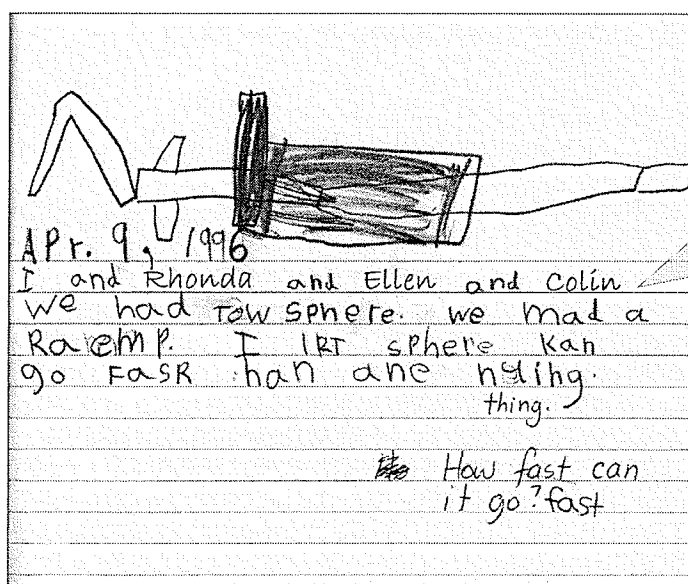 Apr. 9, 1996
I and Rhonda and Ellen and Colin
we had Tow sphere. we mad a
RaemP. I lRT sphere kan
go FasR han ane nying.
thing.
How fast can
it go? fast